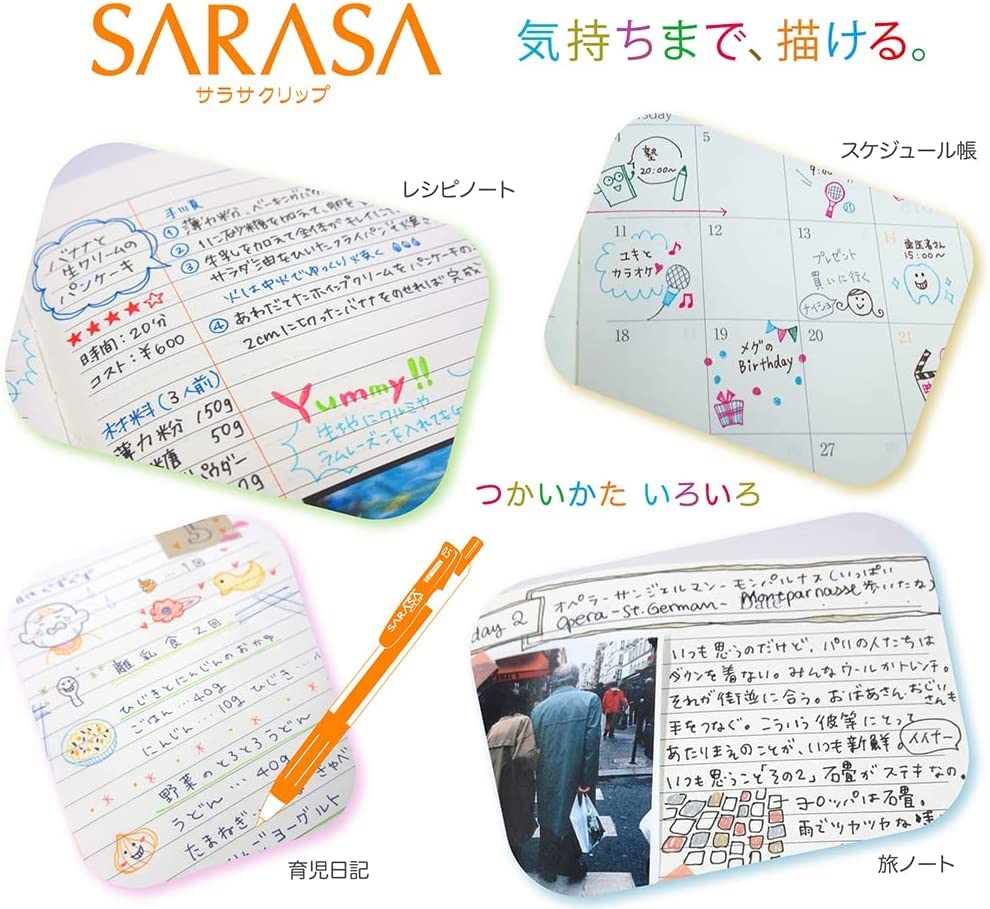 SARASA
サラサクリップ
気持ちまで、描ける。
レシピノート
バナナと
生クリームの
パンケーキ
★★★★☆
時間:20分
コスト:¥600
材料(3人前)
薄力粉 150g
50g
パウダー
手順
① 薄力粉、ベーキングパ
②
③ 牛乳を加えて全体がキレイに
サラダ油をひいたフライパンで
火は中火でゆっくり
④ あわだてたホイップクリームをパンケーキの
2cmに切ったバナナをのせれば完成
Yummy!!
生地にクルミや
ラムレーズンを入れても
スケジュール帳
sday
4
塾
20:00〜
5
9:00
11
ユキと
カラオケ
12
13
プレゼント
買いに行く
ナイショ
14
歯医者さん
15:00〜
18
19
メグの
Birthday
20
21
27
つかいかた いろいろ
5
1回
離乳食 2回
ひじきとにんじんのおかゆ
ごはん…40g ひじき…
にんじん…10g
野菜のとろとろうどん
うどん…40g きゃべ
たまねぎ
ヨーグルト
SARASA
CLIP
0.5
育児日記
day 2
オペラーサンジェルマンーモンパルナス(いっぱい
歩いたな)
Opera-St.German-Montparnasse
Date
いつも思うのだけど、パリの人たちは
ダウンを着ない。みんなウールかトレンチ。
それが街並に合う。おばあさん、おじいさんも
手をつなぐ。こういう彼等にとって
あたりまえのことが、いつも新鮮。イイナー
いつも思うこと「その2」石畳がステキなの。
ヨーロッパは石畳。
雨でツヤツヤな
旅ノート